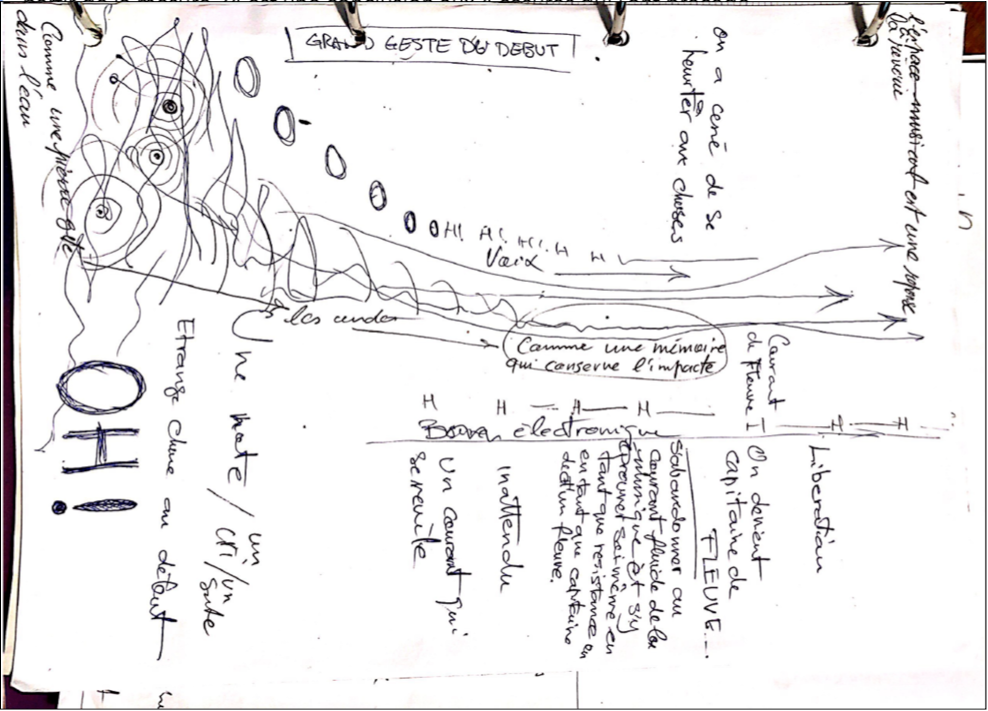 GRAND GESTE DU DEBUT
Comme une pierre
dans l'eau
on a cessé de se
heurter aux choses
l'espace musical est une réponse
à l'avenir
O O O O O O H! H! H! H H
Voix
les ondes
Comme une mémoire
qui conserve l'impacte
Courant
de fleuve
H H H H I I H
électronique
OH!
Etrange chose au début
Une note / un
cri / un
geste
Un courant qui
se révèle
inattendu
S'abandonner au
courant fluide de la
musique et s'y
éprouver soi-même en
tant que résistance
en tant que capitaine
d'un fleuve.
On devient
capitaine de
FLEUVE...
Libération